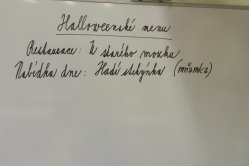 Halloweenské menu
Restaurace: U starého mozku
Nabídka dne: Hadí slizynka (mňamka)